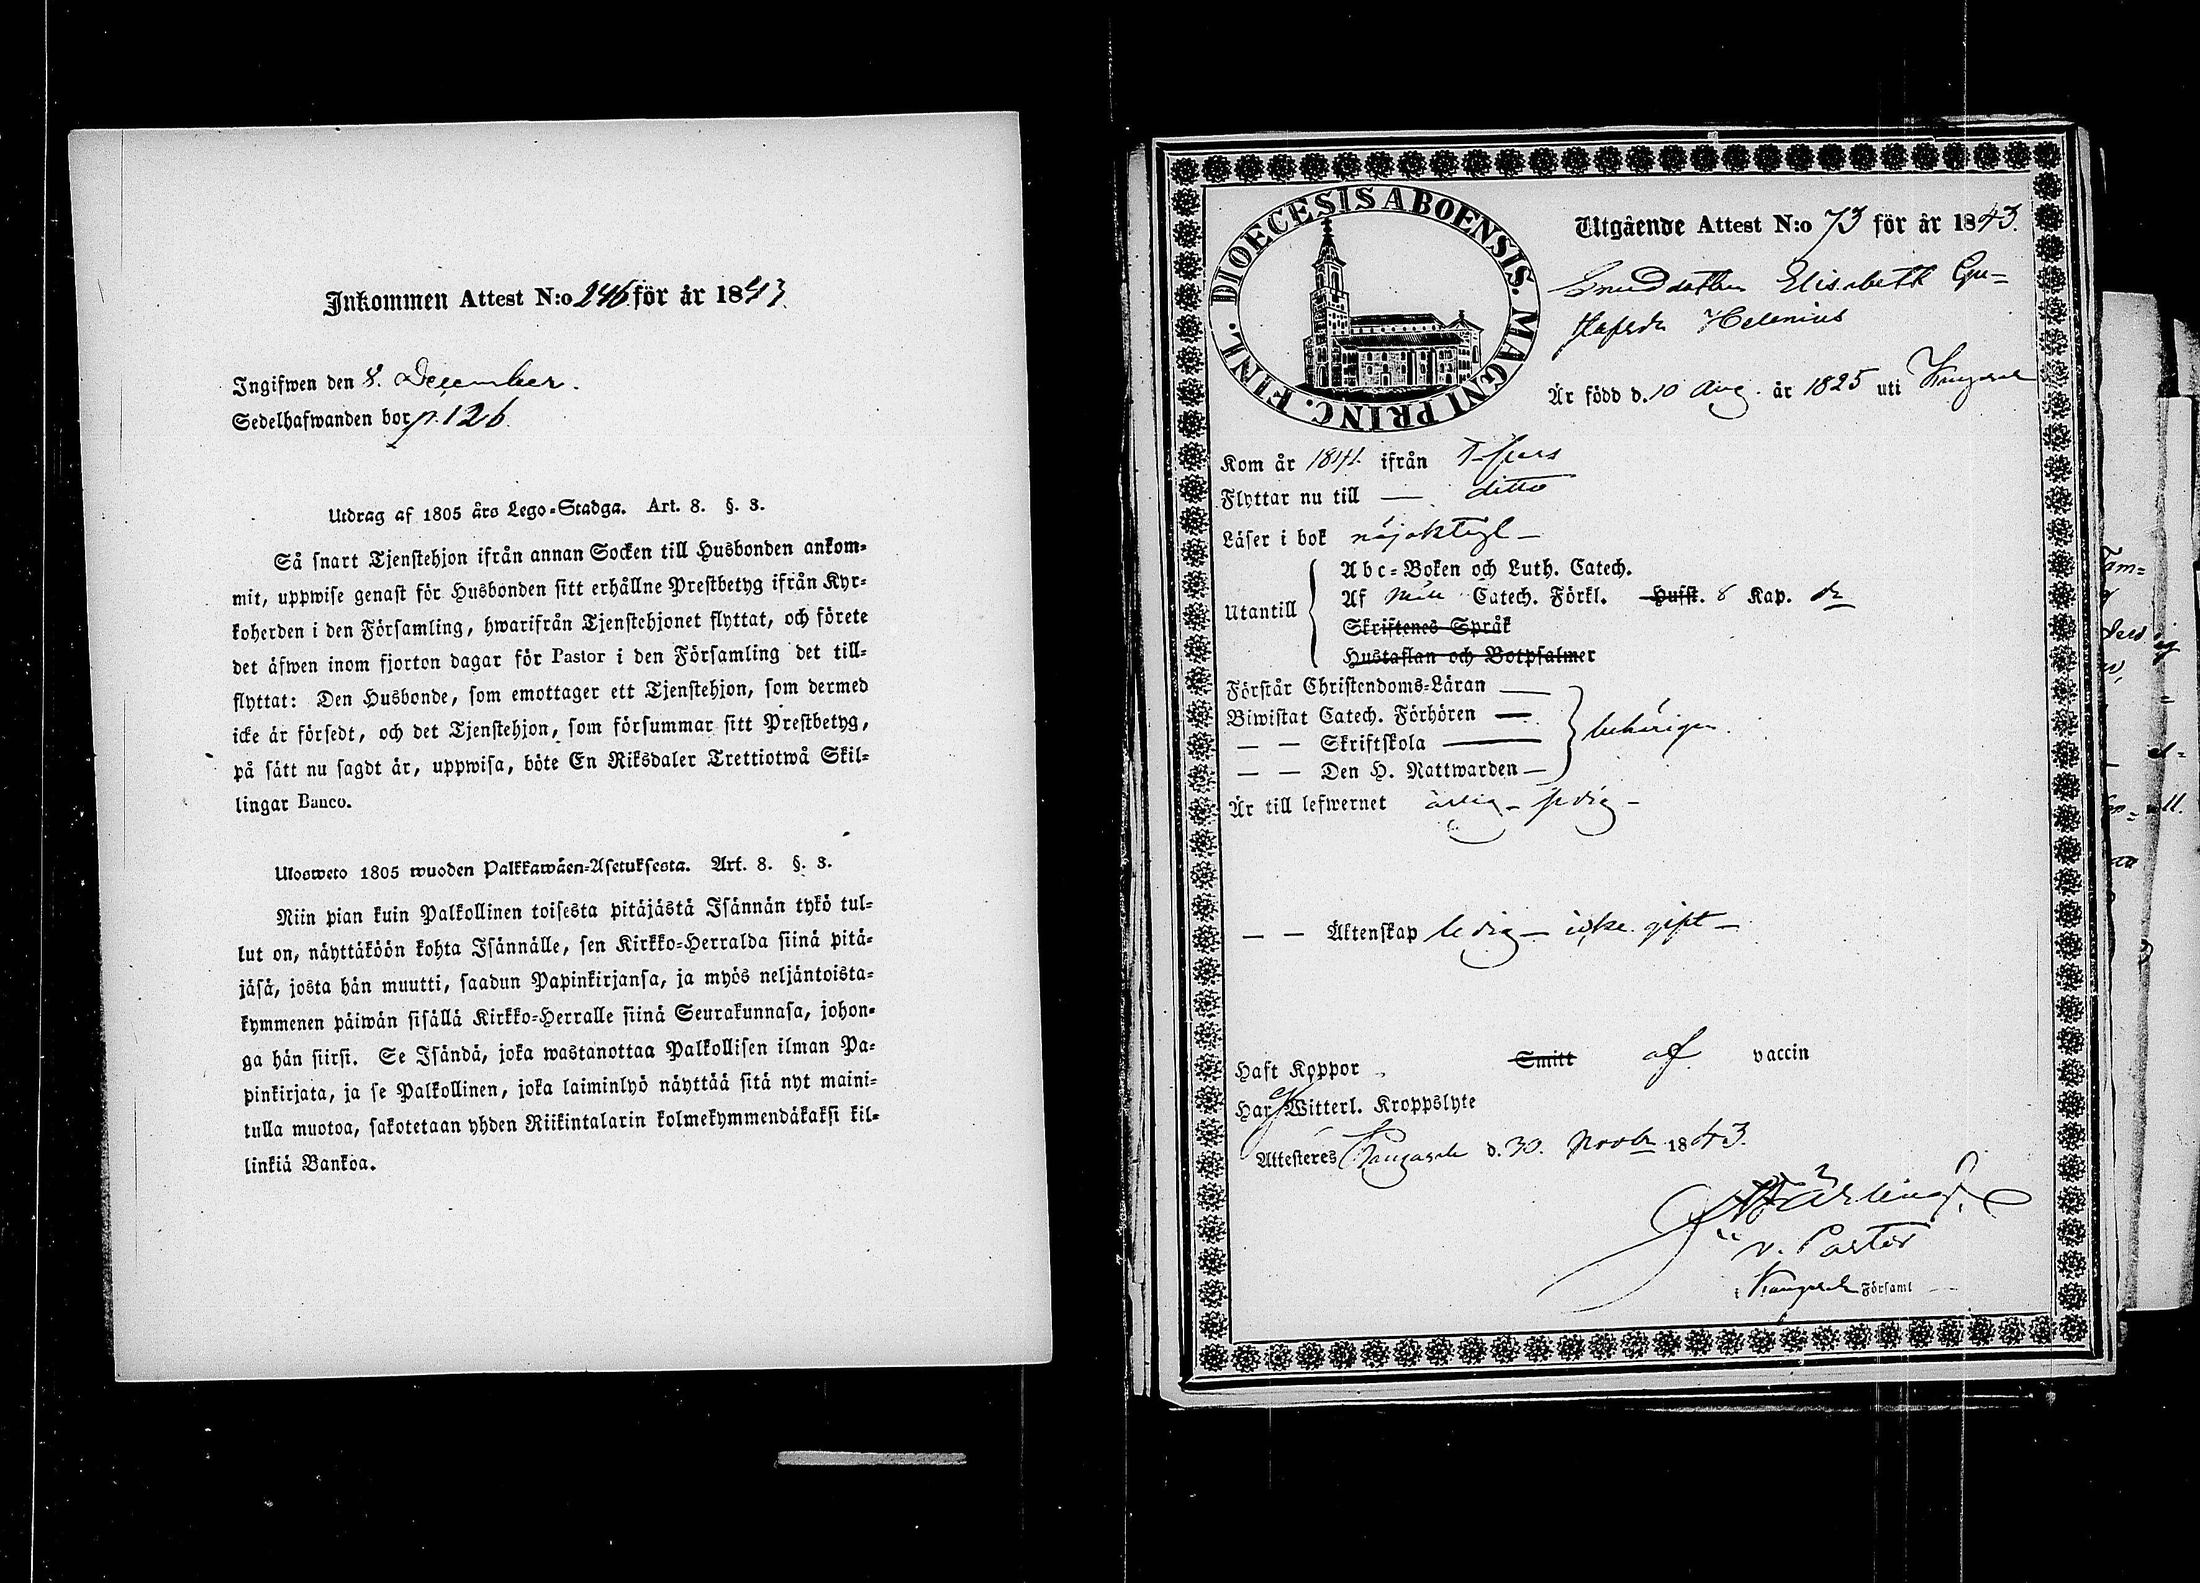 Inkommen Attest N:o 246 för år 1843
Ingifwen den 8. December.
Sedelhafwanden bor p. 126.
Utdrag af 1805 års Lego-Stadga. Art. 8. §. 3.
Så snart Tjenstehjon ifrån annan Socken till Husbonden ankom-
mit, uppwise genast för Husbonden sitt erhållne Prestbetyg ifrån Kyr-
koherden i den Församling, hwarifrån Tjenstehjonet flyttat, och förete
det äfwen inom fjorton dagar för Pastor i den Församling det till-
flyttat: Den Husbonde, som emottager ett Tjenstehjon, som dermed
icke är försedt, och det Tjenstehjon, som försummar sitt Prestbetyg,
på sätt nu sagdt är, uppwisa, böte En Riksdaler Trettiotwå Skil-
lingar Banco.
Ulosweto 1805 wuoden Palkkawäen-Asetuksesta. Art. 8. §. 3.
Niin pian kuin Palkollinen toisesta pitäjästä Isännän tykö tul-
lut on, näyttäköön kohta Isännälle, sen Kirkko-Herralda siinä pitä-
jäsä, josta hän muutti, saadun Papinkirjansa, ja myös neljäntoista-
kymmenen päiwän sisällä Kirkko-Herralle siinä Seurakunnasa, johon-
ga hän siirsi. Se Isändä, joka wastanottaa Palkollisen ilman Pa-
pinkirjata, ja se Palkollinen, joka laiminlyö näyttää sitä nyt maini-
tulla muotoa, sakotetaan yhden Riikintalarin kolmekymmendäkaksi kil-
linkiä Bankoa.
DIOECESIS ABOENSIS. MAGNI PRINC. FINL.
Utgående Attest N:o 73 för år 1843.
Smeddottren Elisabeth Gu-
stafsdr Helenius
Är född d. 10 Aug. år 1825 uti Kangasala
Kom år 1841. ifrån T-fors
Flyttar nu till — ditto
Läser i bok nöjaktigt —
Utantill
Abc-Boken och Luth. Catech.
Af Catech. Förkl. Husst. 8 Kap.
Skriftenes Språk
Hustaflan och Botpsalmer
Förstår Christendoms-Läran —
Biwistat Catech. Förhören —
— — Skriftskola — behörigen.
— — Den H. Nattwarden —
Är till lefwernet ärlig —
— — Äktenskap ledig — icke gift —
Haft Koppor Smitt af vaccin
Har ej Witterl. Kroppslyte
Attesteres Kangasala d. 30. Novbr 1843.
v. Pastor
i Kangasala Församl